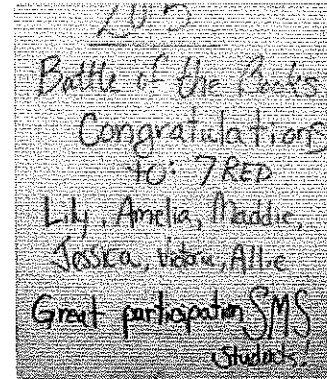 Battle of the Books
Congratulations
to: 7 RED
Lily, Amelia, Maddie,
Jessica, Victoria, Allie
Great participation SMS
Students!